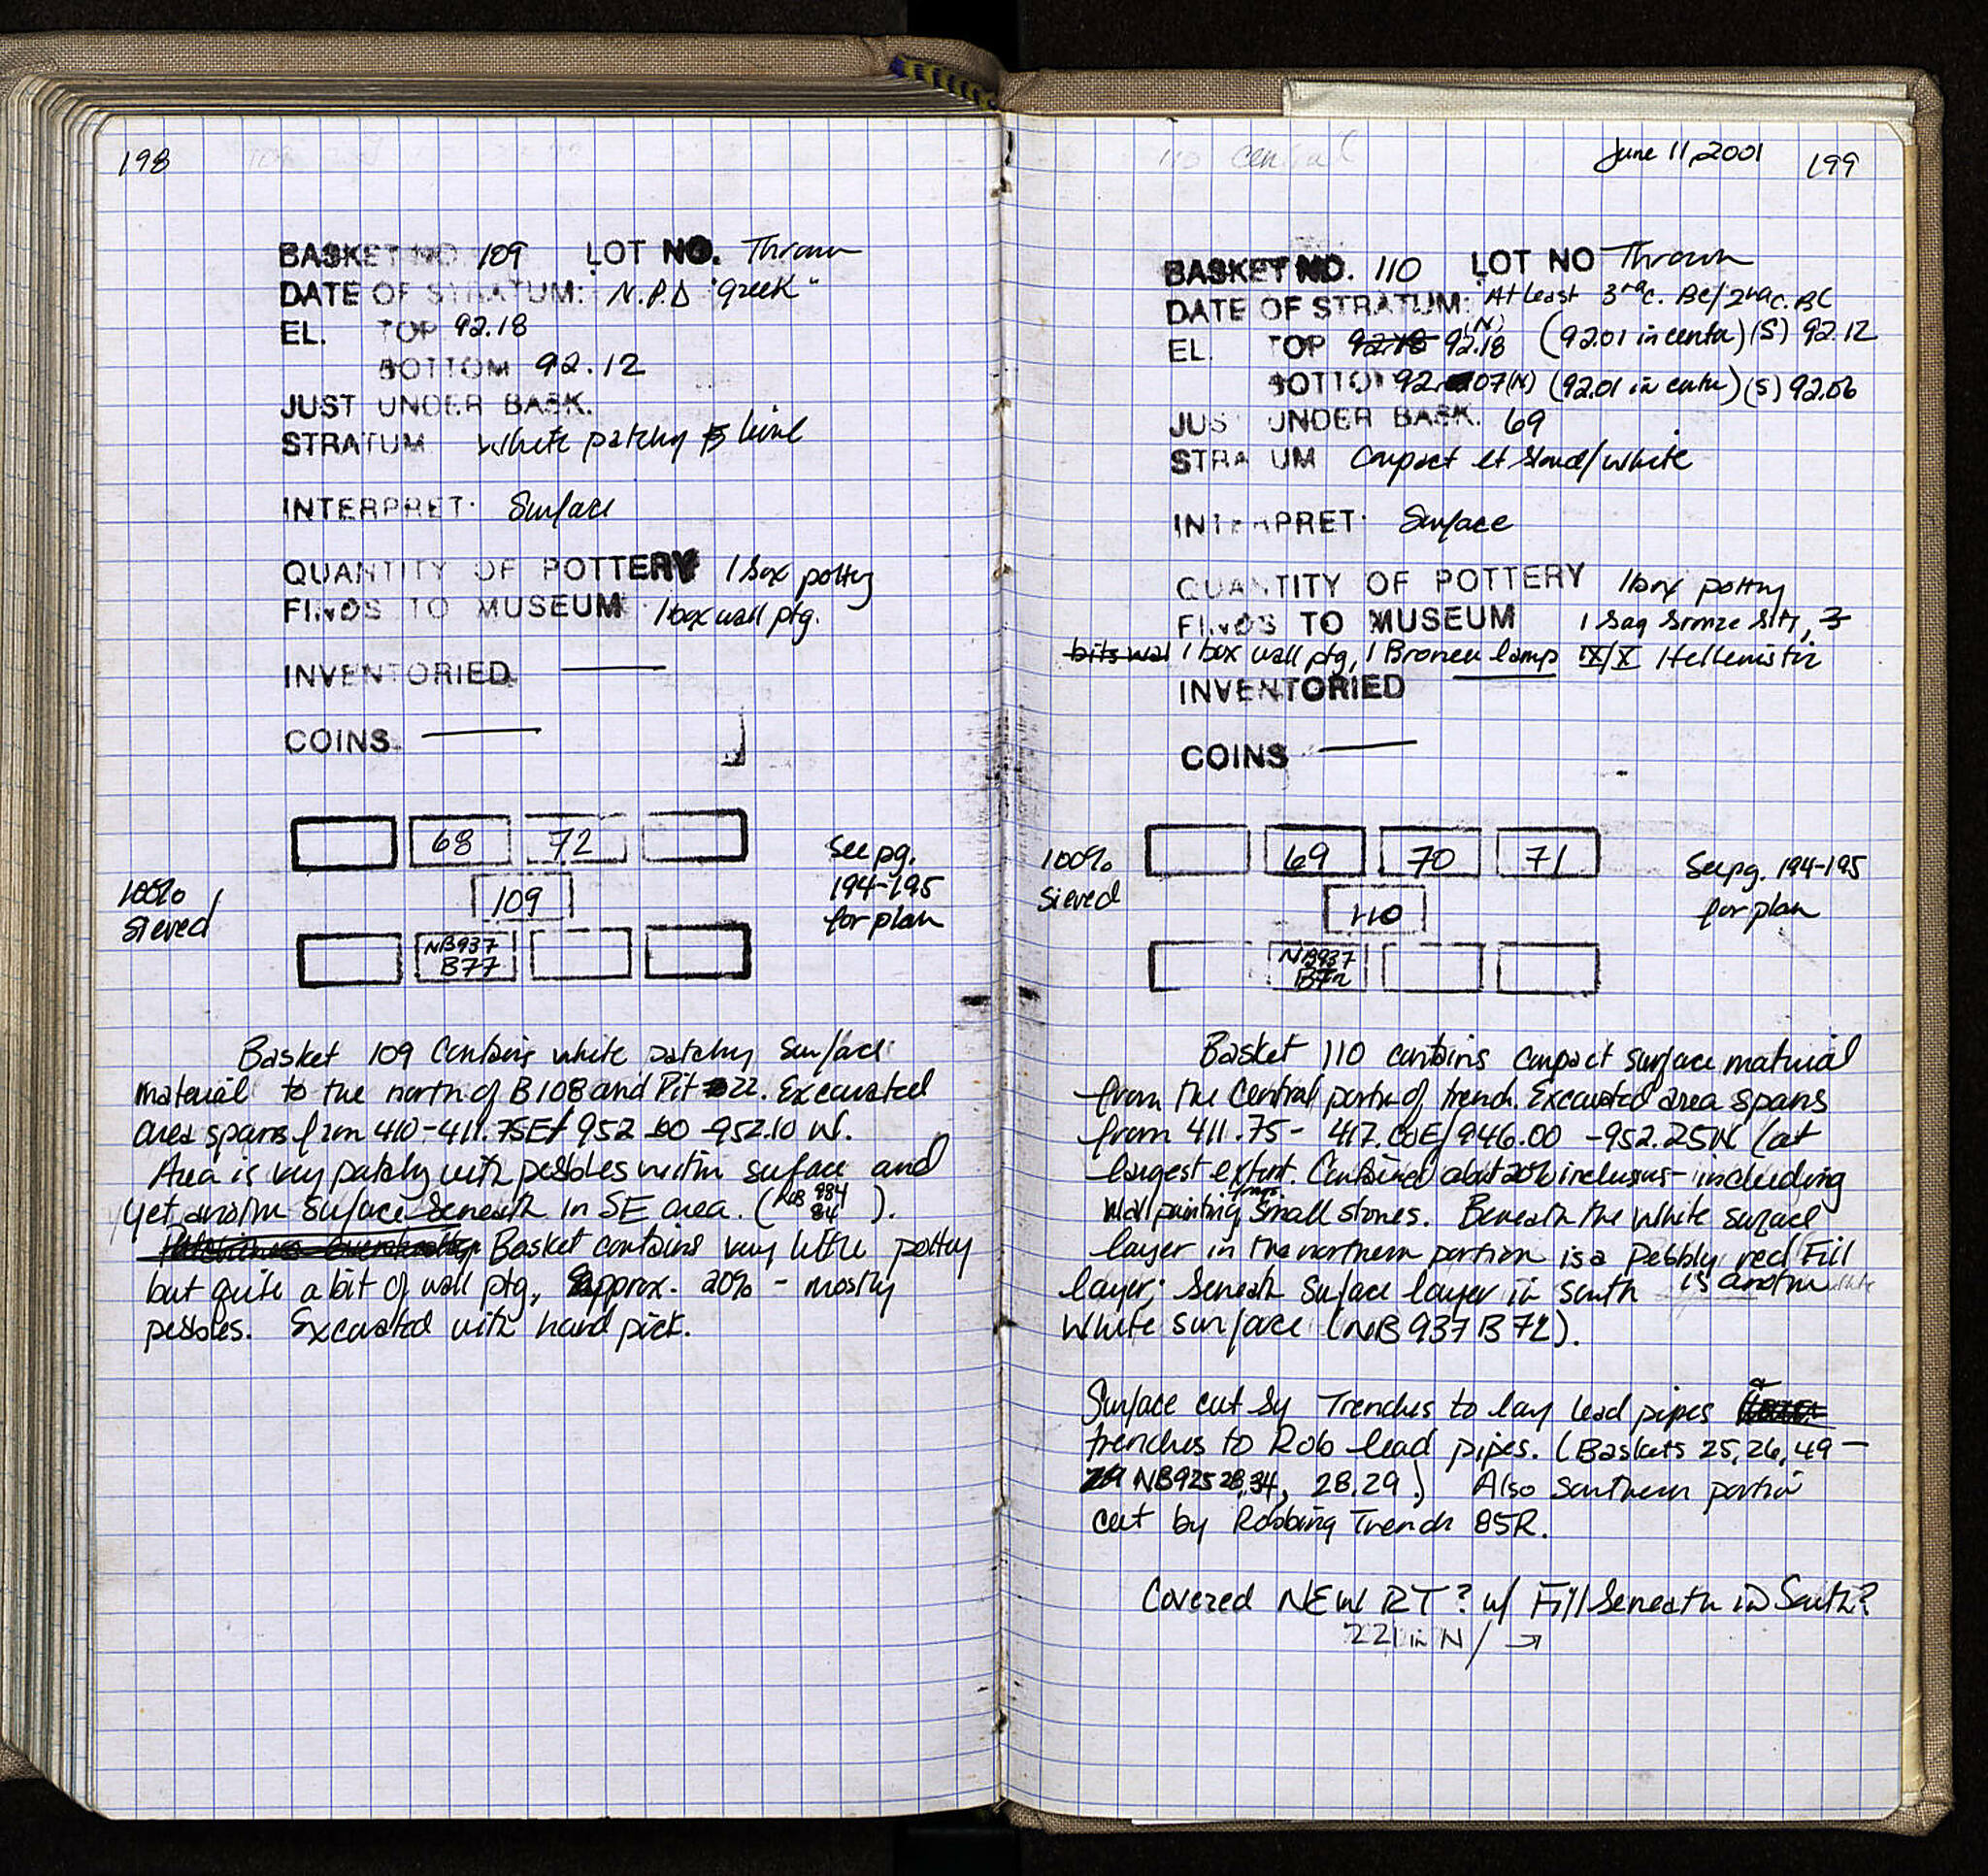 198
BASKET NO. 109 LOT NO. Thrown
DATE OF STRATUM: N.P.D "Greek"
EL. TOP 92.18
BOTTOM 92.12
JUST UNDER BASK.
STRATUM White patchy
INTERPRET: Surface
QUANTITY OF POTTERY 1 box pottery
FINDS TO MUSEUM 1 box wall ptg.
INVENTORIED
COINS
68 72
109
NB937
B77
100%
sieved
See pg.
194-195
for plan
Basket 109 contains white patchy surface
material to the north of B108 and Pit 22. Excavated
area spans from 410-411.75E/ 952.00-952.10 N.
Area is very patchy with pebbles within surface and
yet another surface beneath in SE area. (NB 984
84).
Basket contains very little pottery
but quite a bit of wall ptg, approx. 20% - mostly
pebbles. Excavated with hand pick.
110 central
June 11, 2001 199
BASKET NO. 110 LOT NO Thrown
DATE OF STRATUM: At least 3rd c. BC/2nd c. BC
EL. TOP 92.18 92.18 (N) (92.01 in center) (S) 92.12
BOTTOM 92.07(N) (92.01 in center) (S) 92.06
JUST UNDER BASK. 69
STRATUM Compact white
INTERPRET: Surface
QUANTITY OF POTTERY 1 box pottery
FINDS TO MUSEUM 1 bag bronze bits, 3
bits wal 1 box wall ptg, 1 Broneer lamp IX/X Hellenistic
INVENTORIED
COINS
69 70 71
110
NB937
B72
100%
sieved
See pg. 194-195
for plan
Basket 110 contains compact surface material
from the central portion of trench. Excavated area spans
from 411.75- 417.00E/946.00 -952.25N (at
largest extent. Contained about 20% inclusions - including
wall painting frags. small stones. Beneath the white surface
layer in the northern portion is a pebbly red Fill
layer; beneath surface layer in south is another
white surface (NB 937 B 72).
Surface cut by Trenches to lay lead pipes
trenches to Rob lead pipes. (Baskets 25, 26, 49 -
NB925 28,34, 28.29.) Also southern portion
cut by Robbing Trench 85R.
Covered NEW RT? w/ Fill beneath in South?
221 in N/ →